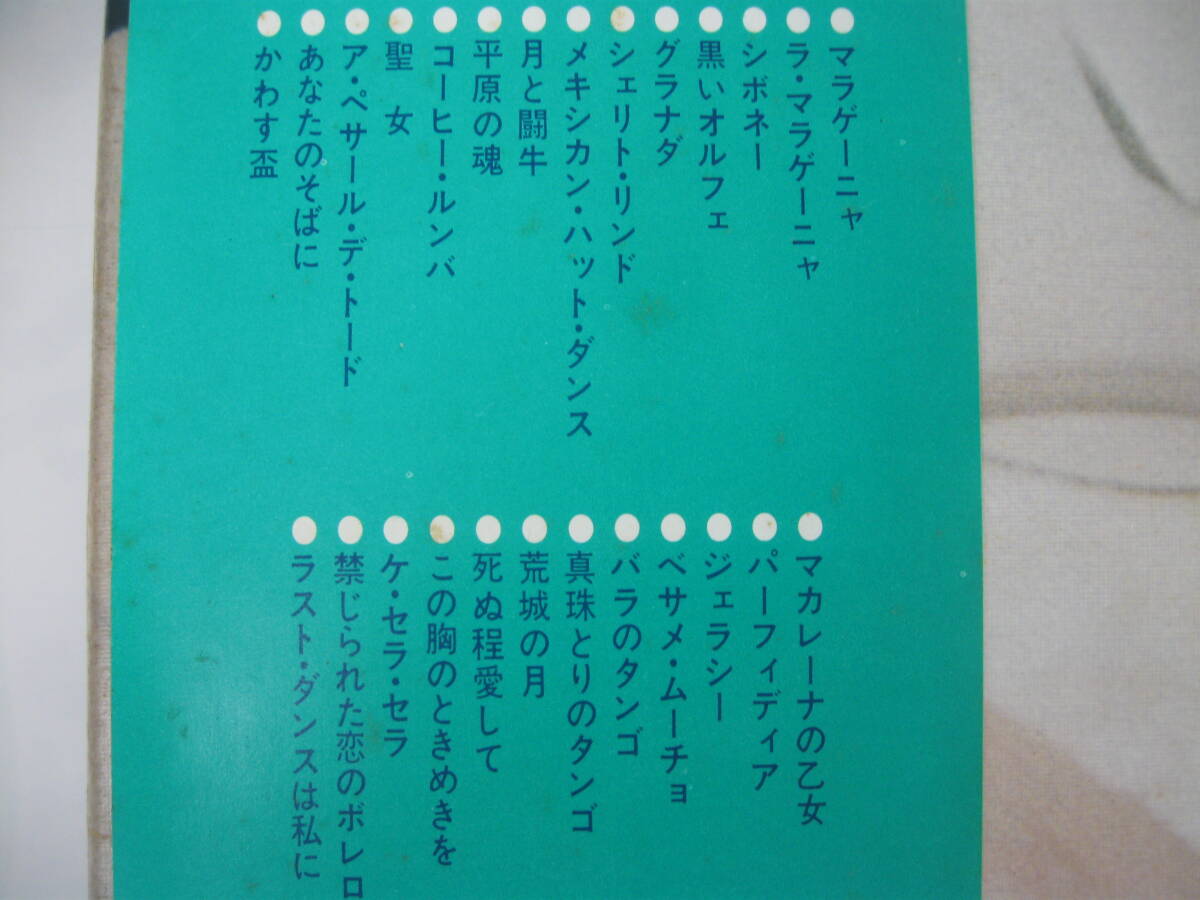 ●マラゲーニャ
●ラ・マラゲーニャ
●シボネー
●黒いオルフェ
●グラナダ
●シェリト・リンド
●メキシカン・ハット・ダンス
●月と闘牛
●平原の魂
●コーヒー・ルンバ
●聖　女
●ア・ペサール・デ・トード
●あなたのそばに
●かわす盃
●マカレーナの乙女
●パーフィディア
●ジェラシー
●ベサメ・ムーチョ
●バラのタンゴ
●真珠とりのタンゴ
●荒城の月
●死ぬ程愛して
●この胸のときめきを
●ケ・セラ・セラ
●禁じられた恋のボレロ
●ラスト・ダンスは私に